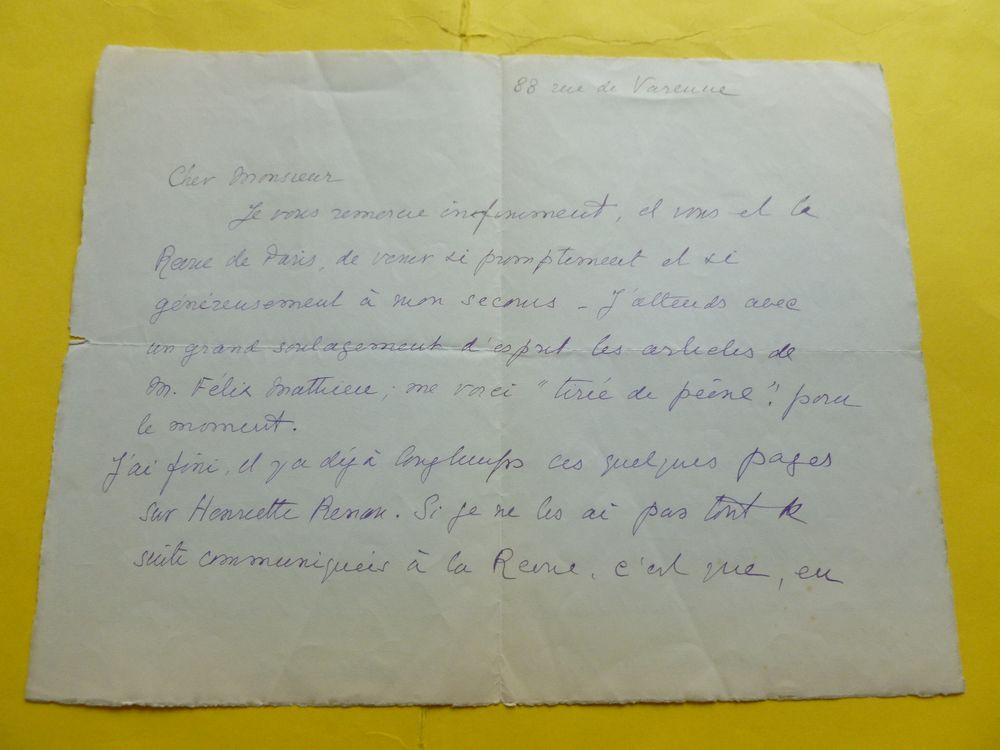 88 rue de Varenne
Cher Monsieur
Je vous remercie infiniment, et vous et la
Revue de Paris, de venir si promptement et si
généreusement à mon secours – J'attends avec
un grand soulagement d'esprit les articles de
M. Félix Mathieu ; me voici "tirée de peine"! pour
le moment.
J'ai fini, il y a déjà longtemps ces quelques pages
sur Henriette Renan. Si je ne les ai pas tout de
suite communiquées à la Revue, c'est que, en